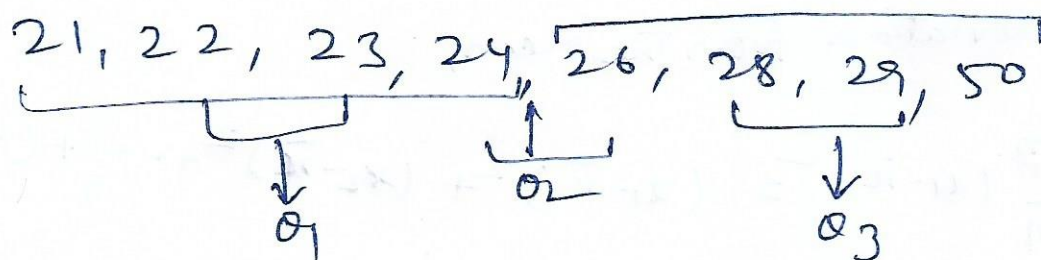 21, 22, 23, 24, 26, 28, 29, 50
Q1 Q2 Q3